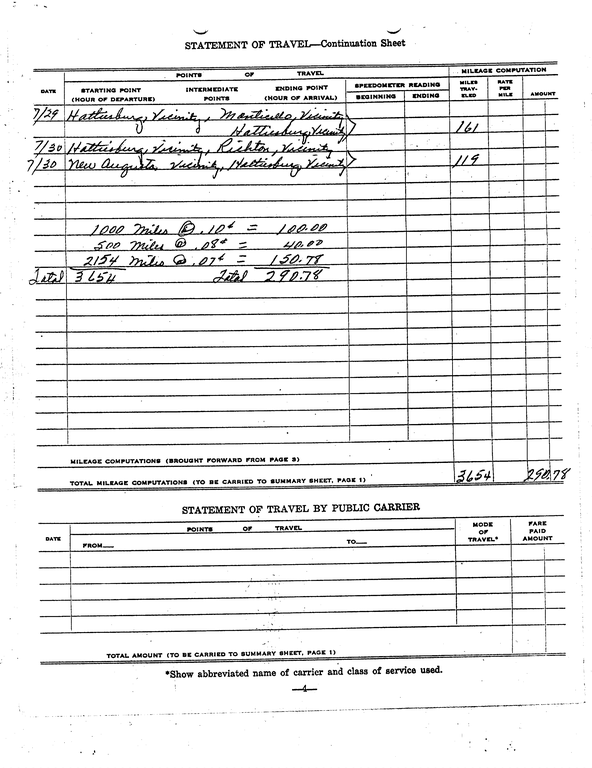 STATEMENT OF TRAVEL—Continuation Sheet
POINTS OF TRAVEL
MILEAGE COMPUTATION
DATE
STARTING POINT (HOUR OF DEPARTURE)
INTERMEDIATE POINTS
ENDING POINT (HOUR OF ARRIVAL)
SPEEDOMETER READING
BEGINNING
ENDING
MILES TRAV- ELED
RATE PER MILE
AMOUNT
7/29 Hattiesburg, Vicinity, Monticello, Vicinity
Hattiesburg, Vicinity 161
7/30 Hattiesburg, Vicinity, Richton, Vicinity
7/30 New Augusta, Vicinity, Hattiesburg Vicinity 119
1000 Miles @ .10¢ = 100.00
500 Miles @ .08¢ = 40.00
2154 Miles @ .07¢ = 150.78
Total 3654 Total 290.78
MILEAGE COMPUTATIONS (BROUGHT FORWARD FROM PAGE 3)
TOTAL MILEAGE COMPUTATIONS (TO BE CARRIED TO SUMMARY SHEET, PAGE 1) 3654 290.78
STATEMENT OF TRAVEL BY PUBLIC CARRIER
DATE
POINTS OF TRAVEL
FROM
TO
MODE OF TRAVEL*
FARE PAID AMOUNT
TOTAL AMOUNT (TO BE CARRIED TO SUMMARY SHEET, PAGE 1)
*Show abbreviated name of carrier and class of service used.
—4—